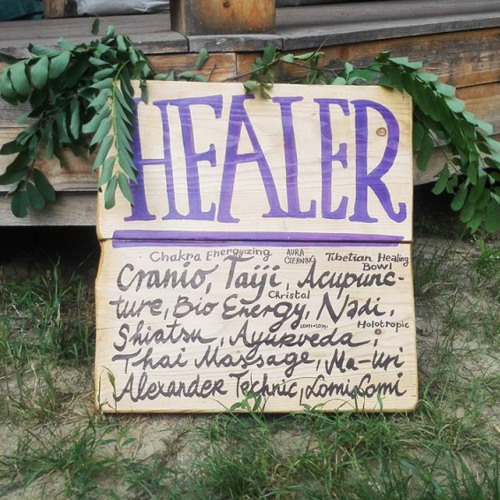 HEALER
Chakra Energyizing AURA CLEANING Tibetian Healing
Bowl
Cranio, Taiji, Acupunc-
Christal
ture, Bio Energy, Nadi,
LOMI-LOMI Holotropic
Shiatsu, Ayurveda,
Thai Massage, Ma-Uri
Alexander Technic, Lomi Lomi